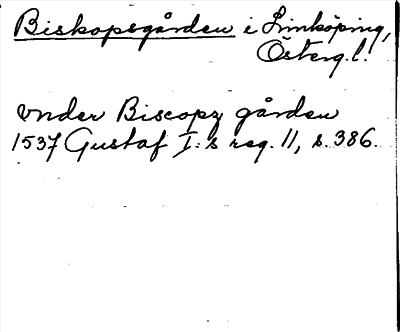 Biskopsgården i Linköping,
Österg.l.
vnder Biscopz gården
1537 Gustaf I:s reg. 11, s. 386.